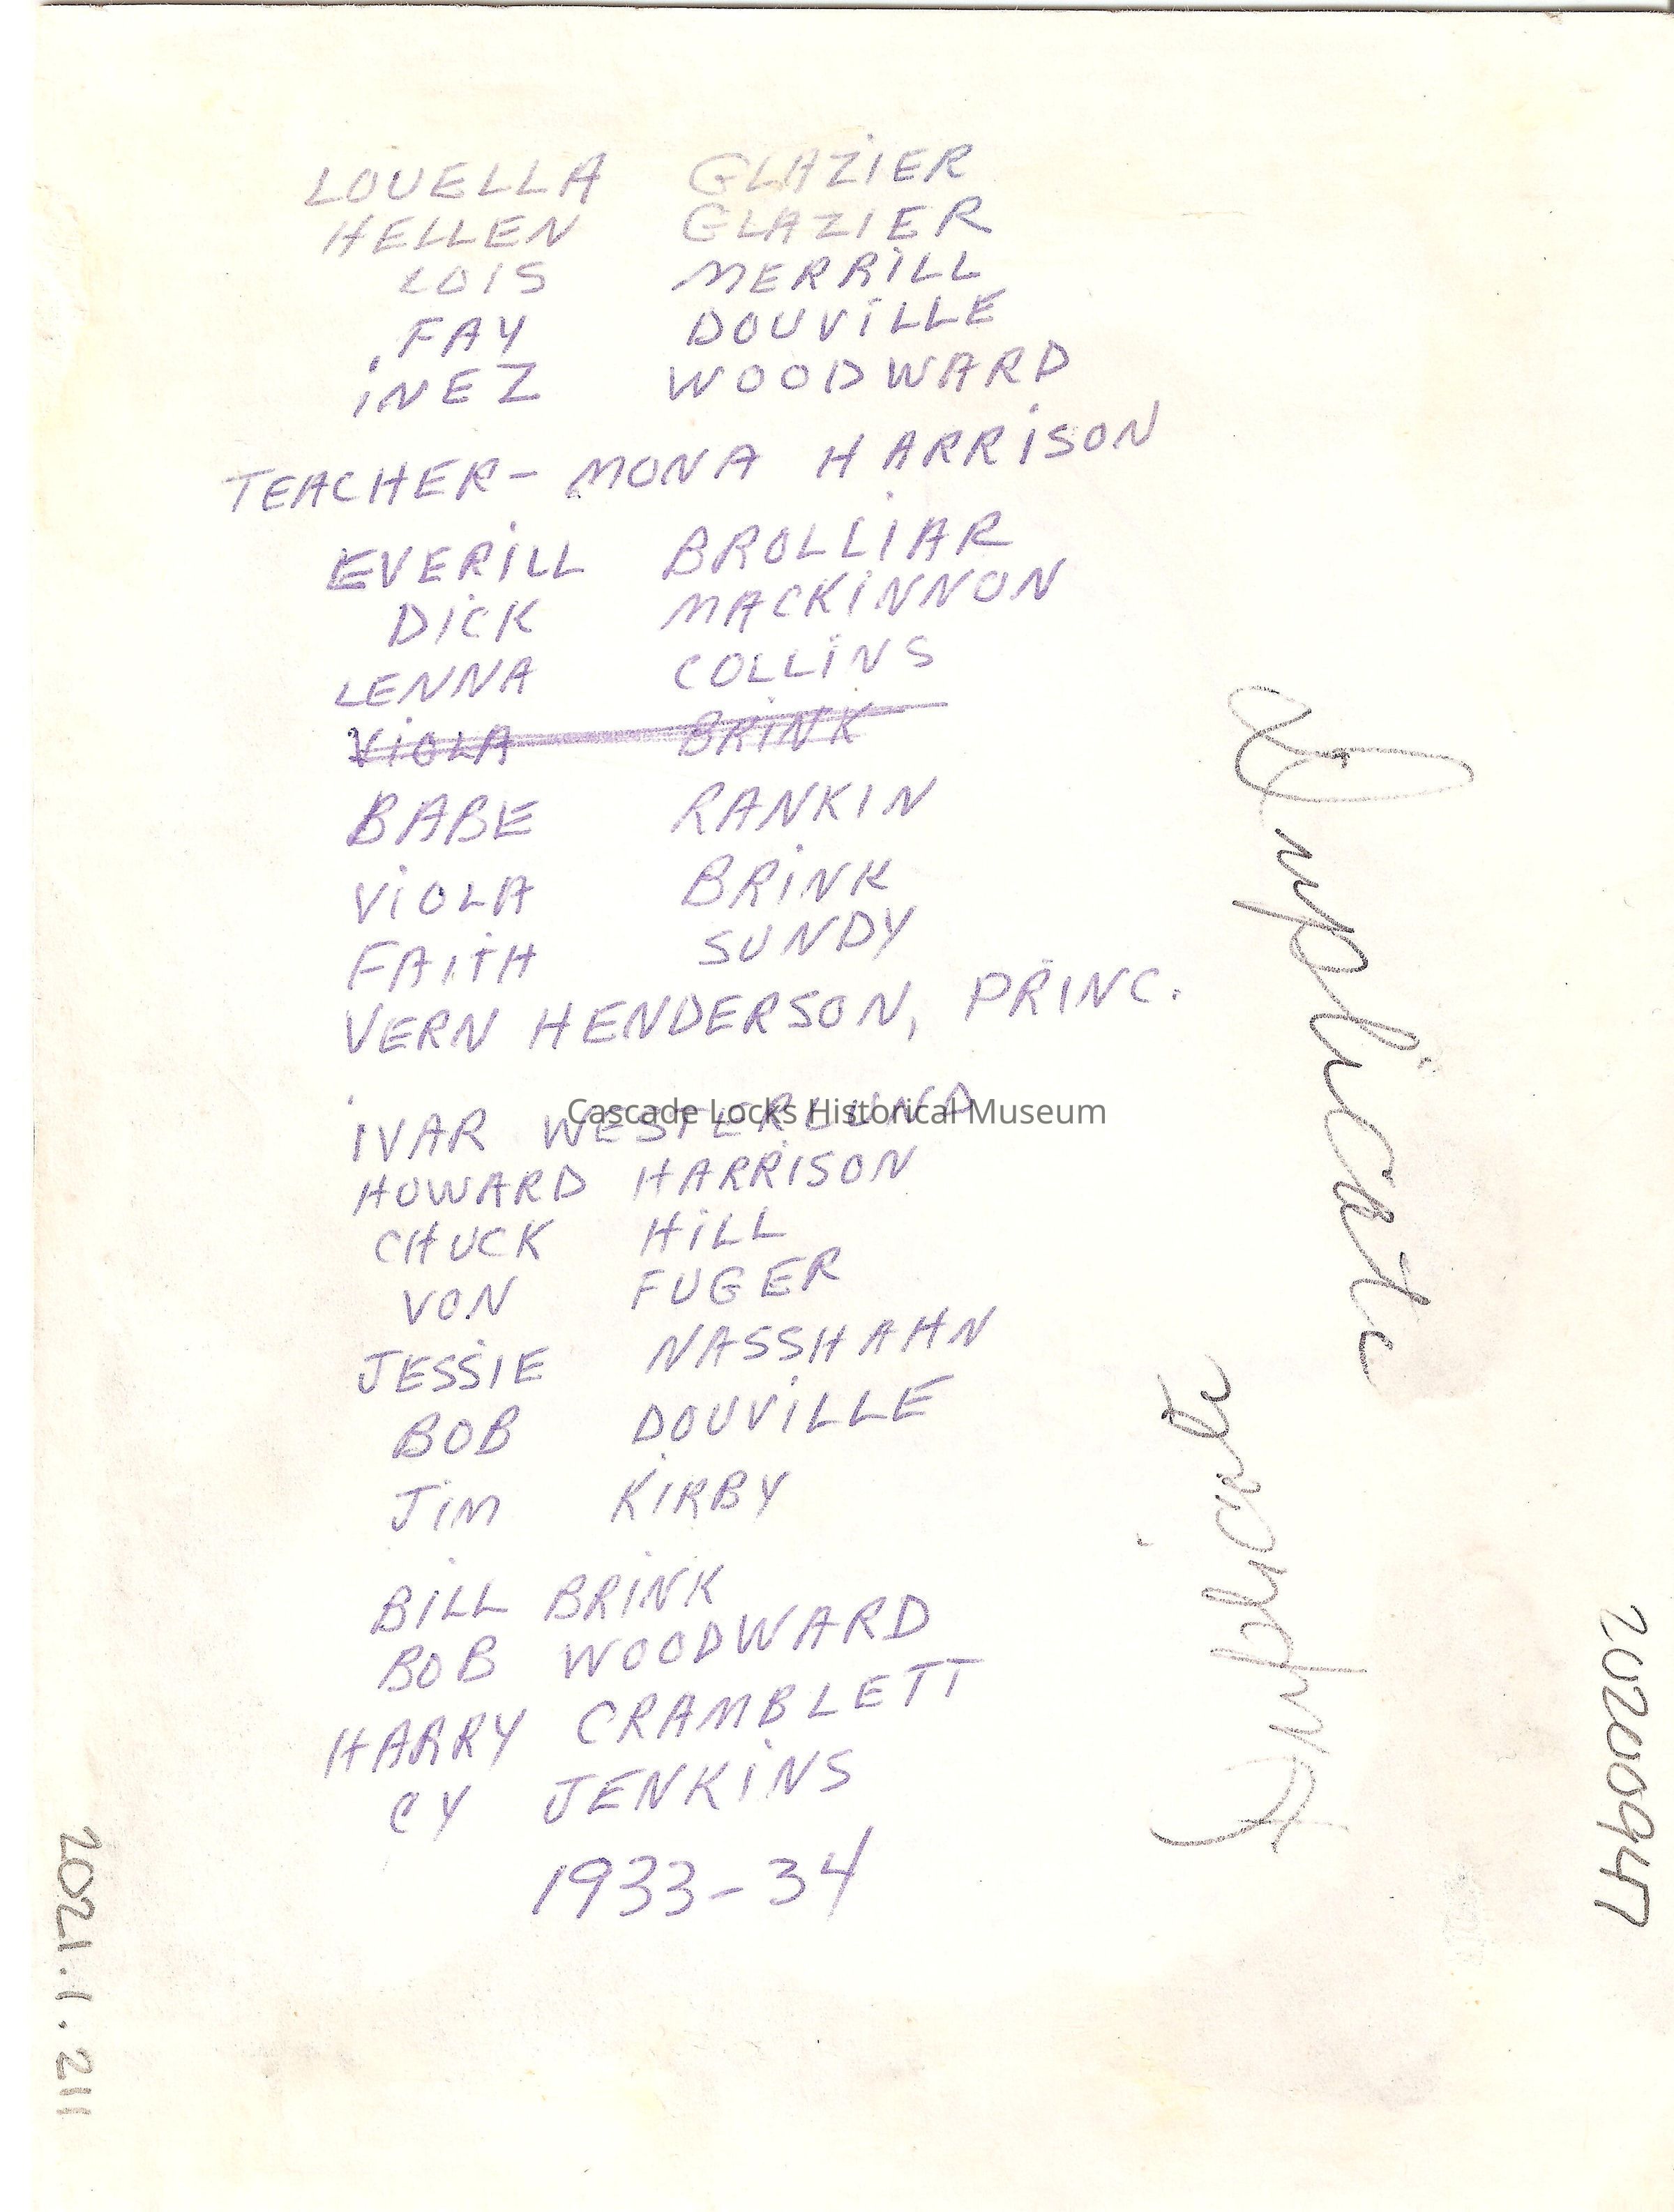 LOUELLA GLAZIER
HELLEN GLAZIER
LOIS MERRILL
FAY DOUVILLE
INEZ WOODWARD
TEACHER- MONA HARRISON
EVERILL BROLLIAR
DICK MACKINNON
LENNA COLLINS
VIOLA BRINK
BABE RANKIN
VIOLA BRINK
FAITH SUNDY
VERN HENDERSON, PRINC.
IVAR WESTERLUND
Cascade Locks Historical Museum
HOWARD HARRISON
CHUCK HILL
VON FUGER
JESSIE NASSHAHN
BOB DOUVILLE
JIM KIRBY
BILL BRINK
BOB WOODWARD
HARRY CRAMBLETT
CY JENKINS
1933-34
Duplicate
Duplicate
2020947
2021.1.211